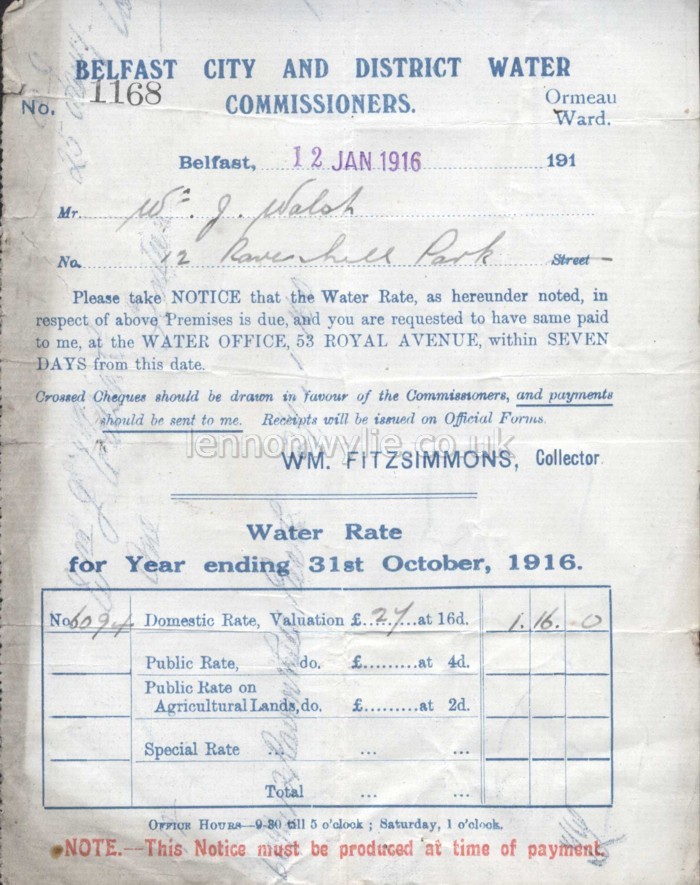 BELFAST CITY AND DISTRICT WATER
COMMISSIONERS.
No. 1168
Ormeau
Ward.
Belfast, 12 JAN 1916 191
Mr. Wm. J. Walsh
No. 12 Ravenhill Park Street
Please take NOTICE that the Water Rate, as hereunder noted, in
respect of above Premises is due, and you are requested to have same paid
to me, at the WATER OFFICE, 53 ROYAL AVENUE, within SEVEN
DAYS from this date.
Crossed Cheques should be drawn in favour of the Commissioners, and payments
should be sent to me. Receipts will be issued on Official Forms.
lennonwylie.co.uk
WM. FITZSIMMONS, Collector.
Water Rate
for Year ending 31st October, 1916.
No. 6094 Domestic Rate, Valuation £ 27 at 16d. 1. 16. 0
Public Rate, do. £.........at 4d.
Public Rate on
Agricultural Lands, do. £.........at 2d.
Special Rate ... ... ...
Total ... ...
OFFICE HOURS—9-30 till 5 o'clock ; Saturday, 1 o'clock.
NOTE.—This Notice must be produced at time of payment.